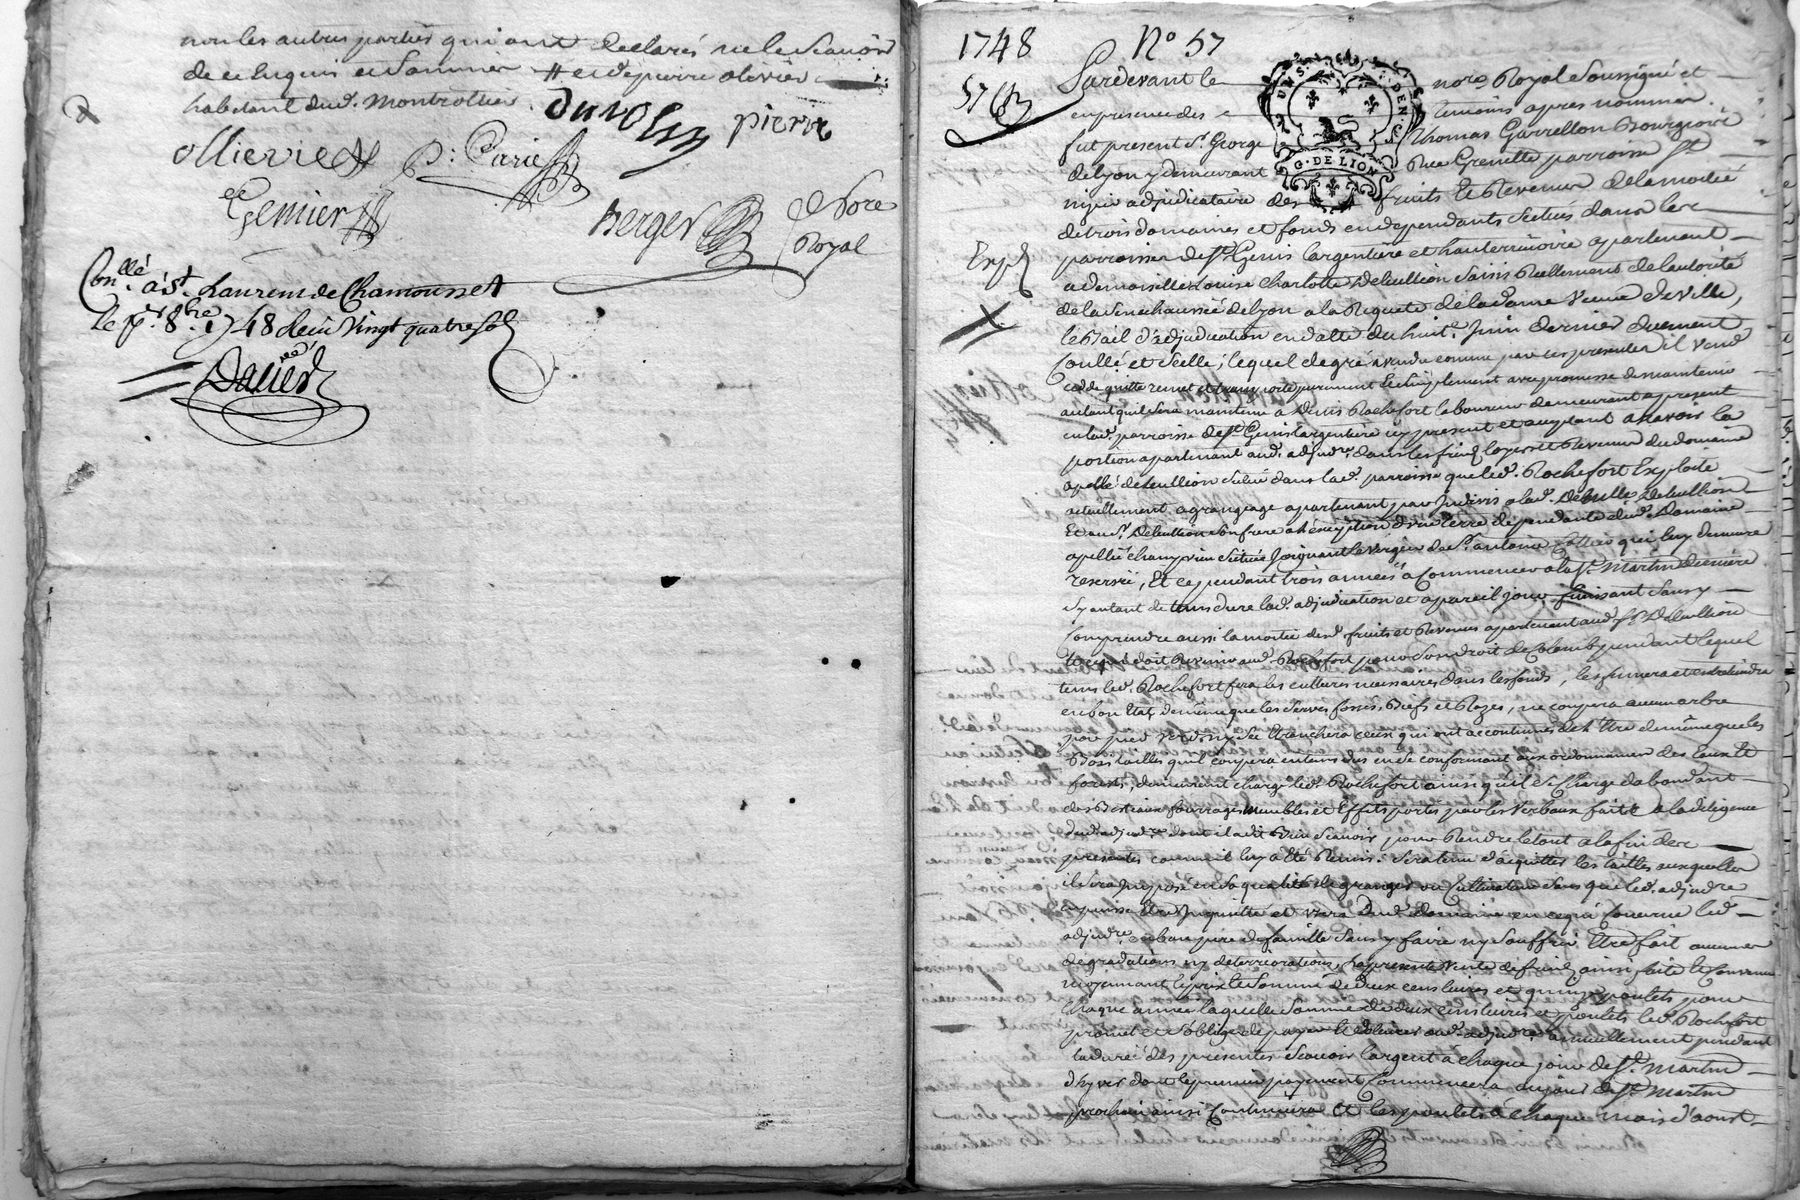 non les autres parties qui ont declarés ne le scavoir
de ce enquis et sommés et de pierre olivier
habitant dud. Montrottier
duvolin pierre
ollierie P: Carie
Gemier
Berger Nore
Royal
Conllé. à St. Laurens de Chamousset
le pr. 8bre 1748 Reçu vingt quatre sols
Daned
1748 No 57
57
Pardevant le nore. Royal soussigné et
en presence des temoins apres nommés
fut present Sr. George Thomas Garrellon Bourgeois
de lyon y demeurant Rue Grenette parroisse St.
nizier adjudicataire des fruits et Revenus de la moitié
de trois domaines et fonds en dependants scitués dans les
Exp.
parroisses de St. Genis l'argentiere et hauterivoire apartenant
a demoiselle Louise Charlotte Debullion saisis Reellement de l'autorité
de la Senechaussée de lyon a la Requete de la dame veuve Deville,
le Bail d'adjudication en datte du huite. Juin dernier duement
conllé et scellé; lequel de gré a vendu comme par ces presentes il vend
cede quitte remet et transporte purement et simplement avec promesse de maintenir
autant qu'il sera maintenu a Denis Rochefort laboureur demeurant a present
en lad. parroisse de St. Genis l'argentiere icy present et acceptant a scavoir la
portion apartenant aud. adjudre. dans les fruits, loyers et Revenus du domaine
apellé debullion scitué dans lad. parroisse que led. Rochefort Exploite
actuellement a grangeage apartenant par Indivis a lad. Delle. Debullion
Et au Sr. Debullion son frere a l'exception d'une terre dependante dud. Domaine
apellée champ scituée Joignant le verger de Sr. antoine qui luy demeure
reservé, Et ce pendant trois années a commencer a la St. Martin derniere
sy autant de tems dure lad. adjudication et a pareil jour finissant sans y
comprendre aussi la moitié desd. fruits et Revenus apartenant aud. Sr. Debullion
et ce qui doit Revenir aud. Rochefort pour son droit de Colon, pendant lequel
tems led. Rochefort fera les cultures necessaires dans les fonds, les fumera et entretiendra
en bon Etat, de même que les serves fossés, Biefs et Razes, ne coupera aucun arbre
par pied verd ny sec Ebranchera ceux qui ont accoutumés de l'Etre de même que les
Bois tailles qu'il coupera en tems dus en se conformant aux ordonnances des Eaux Et
forests, demeurant chargé led. Rochefort ainsi qu'il se Charge d'abondant
des Bestiaux fourrages meubles et Effets portés par les verbaux faits a la diligence
dud. adjudre. dont il a dit Bien scavoir pour Rendre le tout a la fin des
presentes comme il luy a Eté Remis: sera tenu d'acquitter les tailles auxquelles
il sera Imposé en sa qualité de granger ou Cultivateur sans que led. adjudre.
en puisse Etre Inquiétté et usera dud. domaine en ce qui concerne led.
adjudre. en bon pere de famille sans y faire ny souffrir Etre fait aucunes
degradations ny deteriorations, la presente vente de fruits ainsi faite et Convenue
moyennant le prix et Somme de deux cens livres et quinze poulets pour
Chaque année laquelle somme de deux cens livres et poulets led. Rochefort
promet et s'oblige de payer et delivrer aud. adjudre. annuellement pendant
la durée des presentes scavoir l'argent à chaque jour de St. Martin
d'hyver dont le premier payement Commencera au jour de St. Martin
prochain ainsi continuera Et les poulets à chaque mois d'aoust
DU S. DEN. S.
G. DE LION